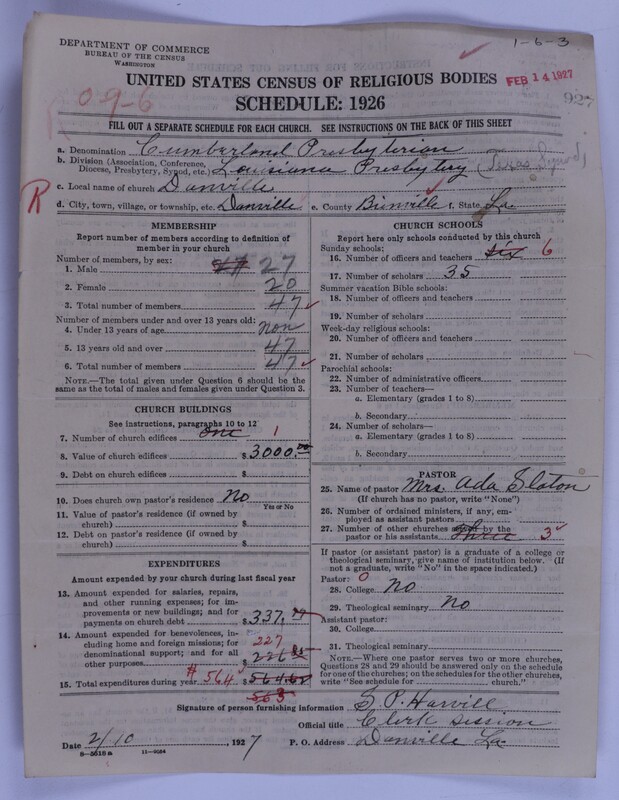 DEPARTMENT OF COMMERCE
BUREAU OF THE CENSUS
WASHINGTON
1-6-3
UNITED STATES CENSUS OF RELIGIOUS BODIES
FEB 14 1927
09-6
SCHEDULE: 1926
927
FILL OUT A SEPARATE SCHEDULE FOR EACH CHURCH. SEE INSTRUCTIONS ON THE BACK OF THIS SHEET
a. Denomination Cumberland Presbyterian
b. Division (Association, Conference, Diocese, Presbytery, Synod, etc.) Louisiana Presbytery (Texas Synod)
c. Local name of church Danville
R
d. City, town, village, or township, etc. Danville e. County Bienville f. State La.
MEMBERSHIP
Report number of members according to definition of
member in your church
Number of members, by sex:
1. Male 27
2. Female 20
3. Total number of members 47
Number of members under and over 13 years old:
4. Under 13 years of age non
5. 13 years old and over 47
6. Total number of members 47
NOTE.—The total given under Question 6 should be
the same as the total of males and females given under Question 3.
CHURCH BUILDINGS
See instructions, paragraphs 10 to 12
7. Number of church edifices one 1
8. Value of church edifices $ 3000.00
9. Debt on church edifices $
10. Does church own pastor's residence No
Yes or No
11. Value of pastor's residence (if owned by
church) $
12. Debt on pastor's residence (if owned by
church) $
EXPENDITURES
Amount expended by your church during last fiscal year
13. Amount expended for salaries, repairs,
and other running expenses; for im-
provements or new buildings; and for
payments on church debt $ 337.
14. Amount expended for benevolences, in-
cluding home and foreign missions; for
denominational support; and for all
other purposes
227
226
15. Total expenditures during year # 564 $ 564.62
563
CHURCH SCHOOLS
Report here only schools conducted by this church
Sunday schools:
16. Number of officers and teachers six 6
17. Number of scholars 35
Summer vacation Bible schools:
18. Number of officers and teachers
19. Number of scholars
Week-day religious schools:
20. Number of officers and teachers
21. Number of scholars
Parochial schools:
22. Number of administrative officers
23. Number of teachers—
a. Elementary (grades 1 to 8)
b. Secondary
24. Number of scholars—
a. Elementary (grades 1 to 8)
b. Secondary
PASTOR
25. Name of pastor Mrs. Ada Slaton
(If church has no pastor, write "None")
26. Number of ordained ministers, if any, em-
ployed as assistant pastors
27. Number of other churches served by the
pastor or his assistants three 3
If pastor (or assistant pastor) is a graduate of a college or
theological seminary, give name of institution below. (If
not a graduate, write "No" in the space indicated.)
Pastor: 0
28. College No
29. Theological seminary No
Assistant pastor:
30. College
31. Theological seminary
NOTE.—Where one pastor serves two or more churches,
Questions 28 and 29 should be answered only on the schedule
for one of the churches; on the schedules for the other churches,
write "See schedule for church."
Signature of person furnishing information S. P. Harvill
Official title Clerk Session
Date 2/10, 1927 P. O. Address Danville La
8-5618a 11-9084